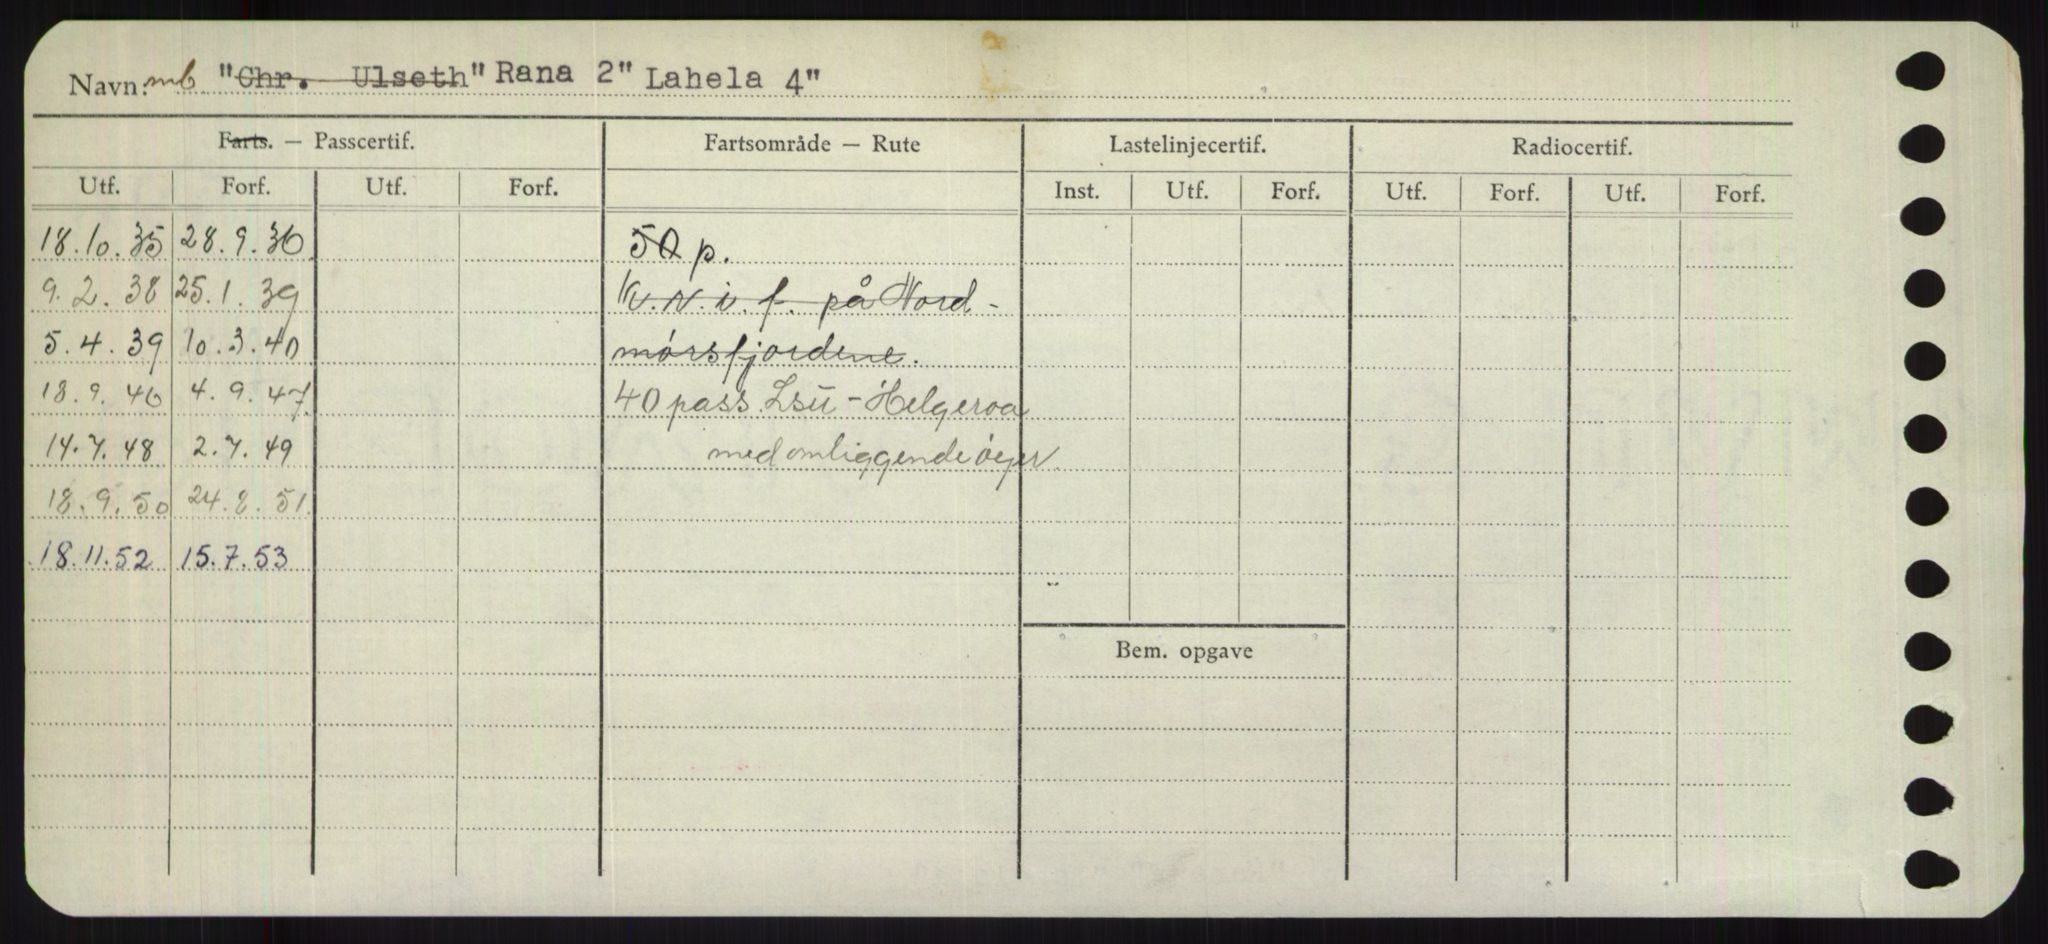 Navn: mb "Chr. Ulseth" Rana 2" Lahela 4"
Farts. — Passcertif. Fartsområde — Rute Lastelinjecertif. Radiocertif.
Utf. Forf. Utf. Forf. Inst. Utf. Forf. Utf. Forf. Utf. Forf.
18.10.35 28.9.36 50 p.
9.2.38 25.1.39 på Nord-
5.4.39 10.3.40 mørsfjordene.
18.9.46 4.9.47. 40 pass. - Helgeroa
14.7.48 2.7.49 med omliggende øyer.
18.9.50 24.8.51.
18.11.52 15.7.53
Bem. opgave